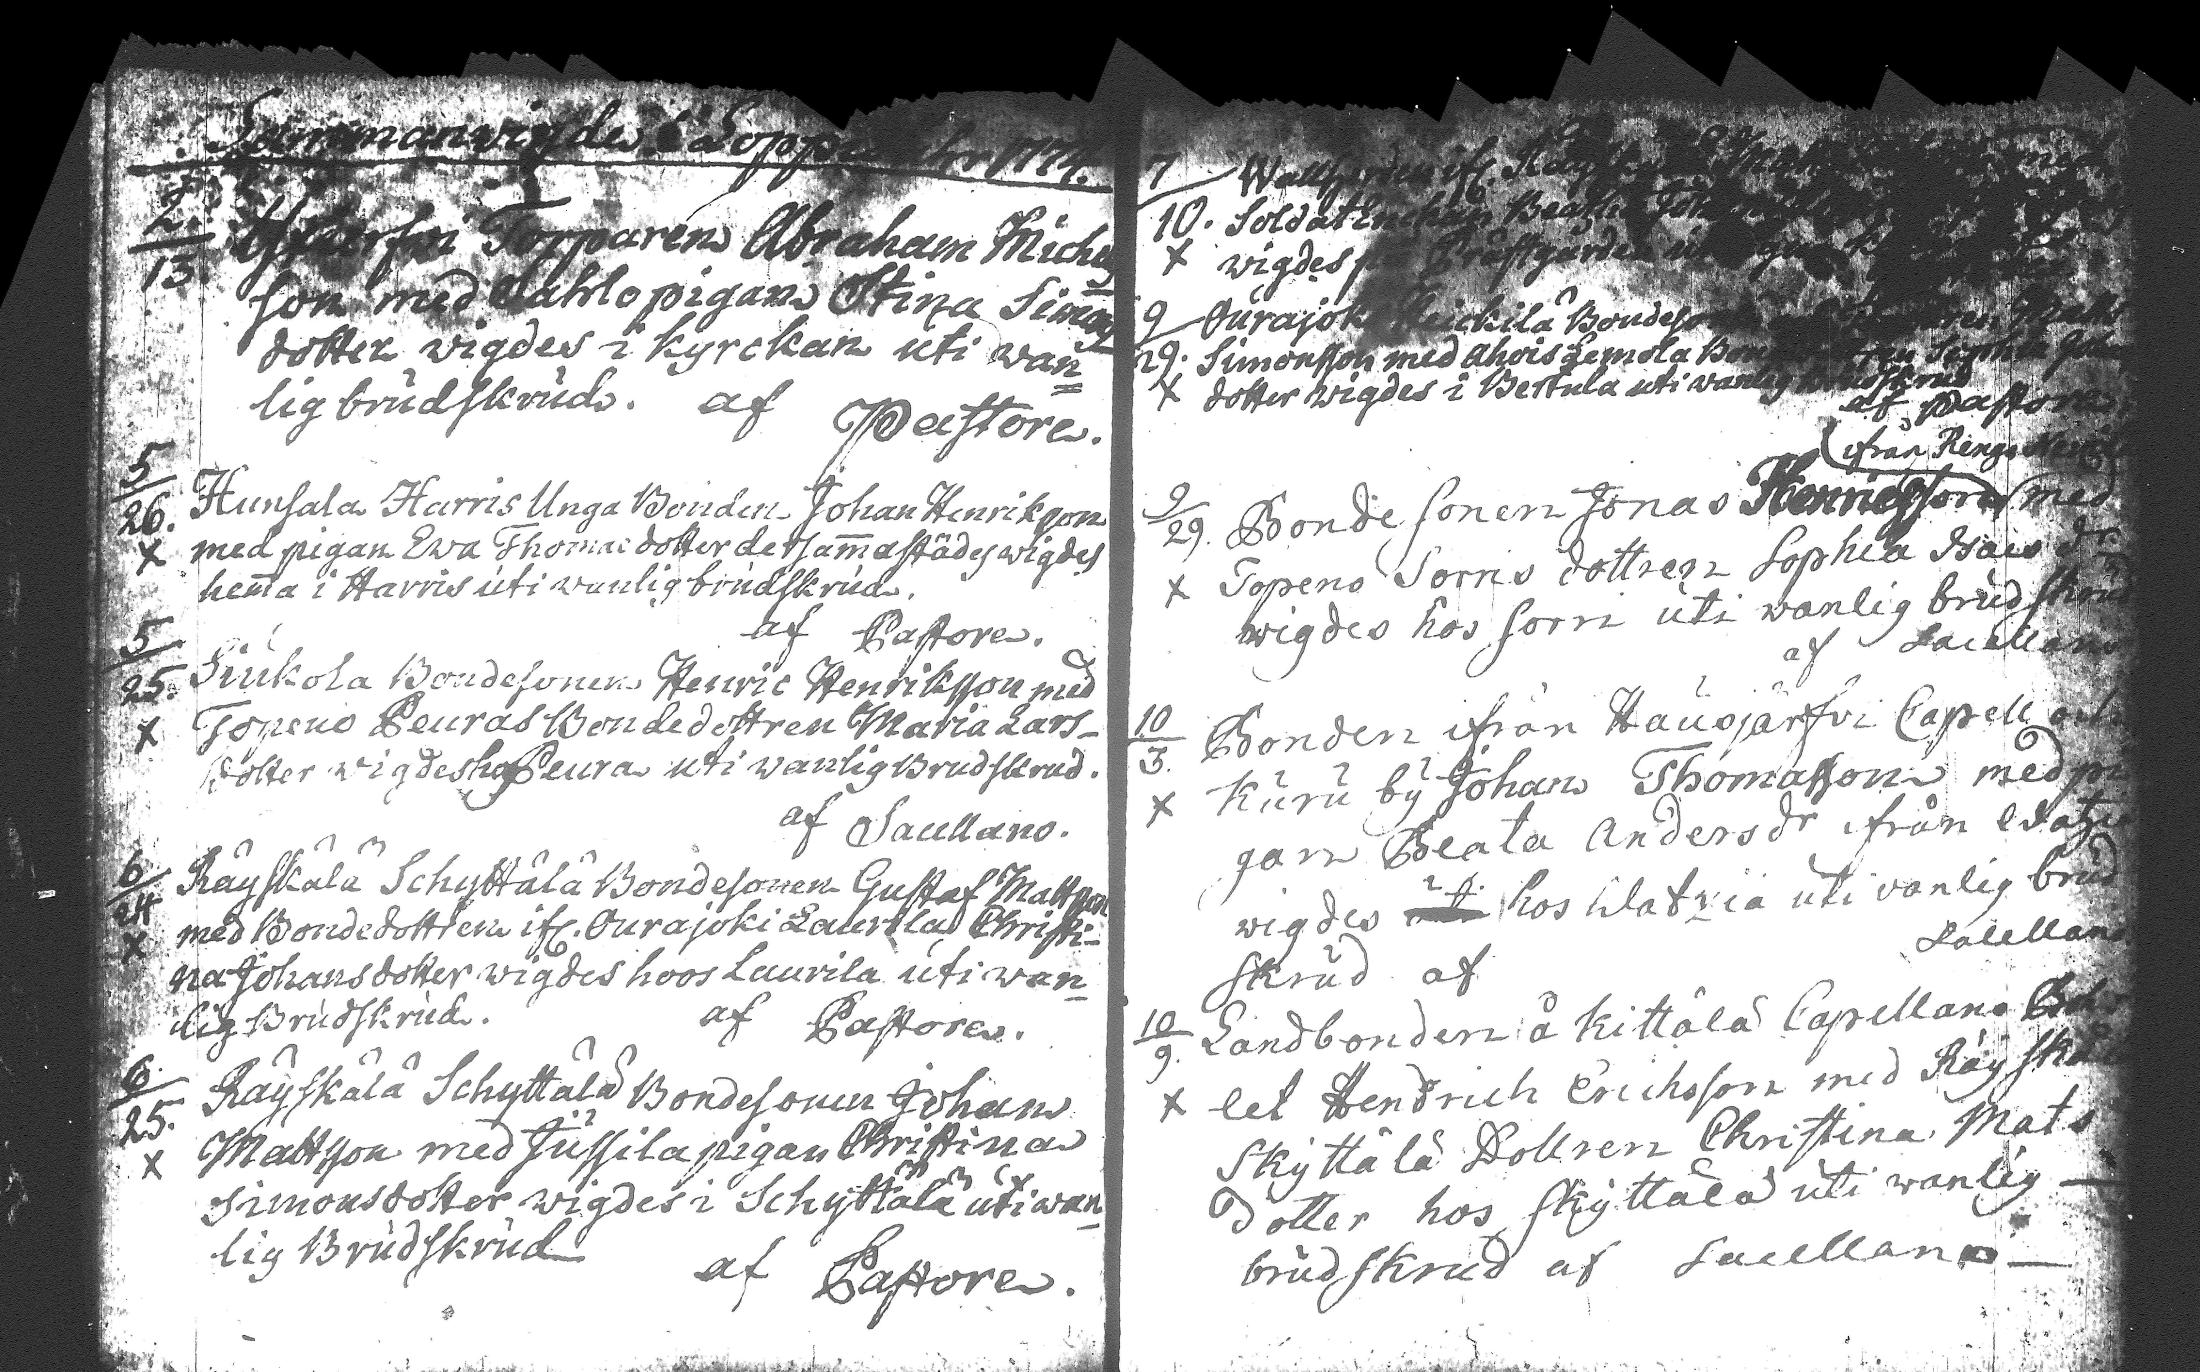 Sammanwigde i Loppis åhr 1774.
2.
13. Topparen Abraham Michels
son med Sahlo pigan Stina Simons
dotter wigdes i kyrckan uti wan
lig brudskrud. af Pastore.
5
26. Hunsala Harris Unga Bonden Johan Henriksson
x med pigan Ewa Thomas dotter dersammastädes wigdes
hemma i Harris uti wanlig brudskrud.
af Pastore.
5
25. Siukola Bondesonen Henric Henriksson med
x Topeno Peuras Bondedottren Maria Lars-
dotter wigdes hos Peura uti wanlig Brudskrud.
af Sacellano.
6
24 Räyskälä Schyttälä Bondesonen Gustaf Mattsson
x med Bondedottren ifr. Ourajoki Laurila Christi-
na Johansdotter wigdes hoos Laurila uti wan
lig Brudskrud. af Pastore.
6
25. Räyskälä Schyttälä Bondesonen Johan
x Mattsson med Jussila pigan Christina
Simonsdotter wigdes i Schyttälä uti wan
lig Brudskrud
af Pastore.
7 ifr.
10. Soldat Enckan Beata
x wigdes på Prästgården
9 Ourajoki Heickilä Bondesonen
29. Simonsson med Ahois Lemola
x dotter wigdes i Bertula uti wanlig Brudskrud
af Pastore
(ifrån Rengo
9
29. Bonde sonen Jonas Henricsson) med
x Topeno Sorris dottren Sophia Isacs dr
wigdes hos Sorri uti wanlig brudskrud
af Sacellano
10
3. Bonden ifrån Hausjärfvi Capell och
x Kuru by Johan Thomasson med pi
gan Beata Anders dr ifrån
wigdes hos uti vanlig brud
skrud af Sacellano
10
9. Landbonden å Kittälä Capellans Bohl
x let Hendrich Erichsson med Räyskälä
Skyttälä Dottren Christina Mats
dotter hos Skyttälä uti wanlig
brudskrud af Sacellano